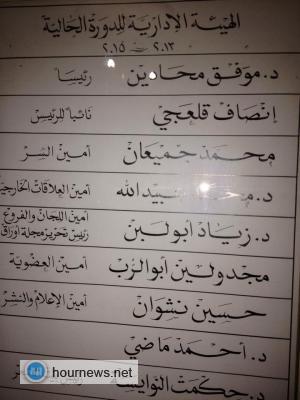 الهيئة الإدارية للدورة الحالية
٢٠١٣ - ٢٠١٥
د. موفق محادين رئيسا
إنصاف قلعجي نائبا للرئيس
محمد جميعان أمين السر
د. محمد عبيدالله أمين العلاقات الخارجية
د. زياد أبولبن أمين اللجان والفروع
رئيس تحرير مجلة أوراق
مجدولين أبوالرب أمين العضوية
حسين نشوان أمين الإعلام والنشر
د. أحمد ماضي
د. حكمت النوايسة
hournews.net